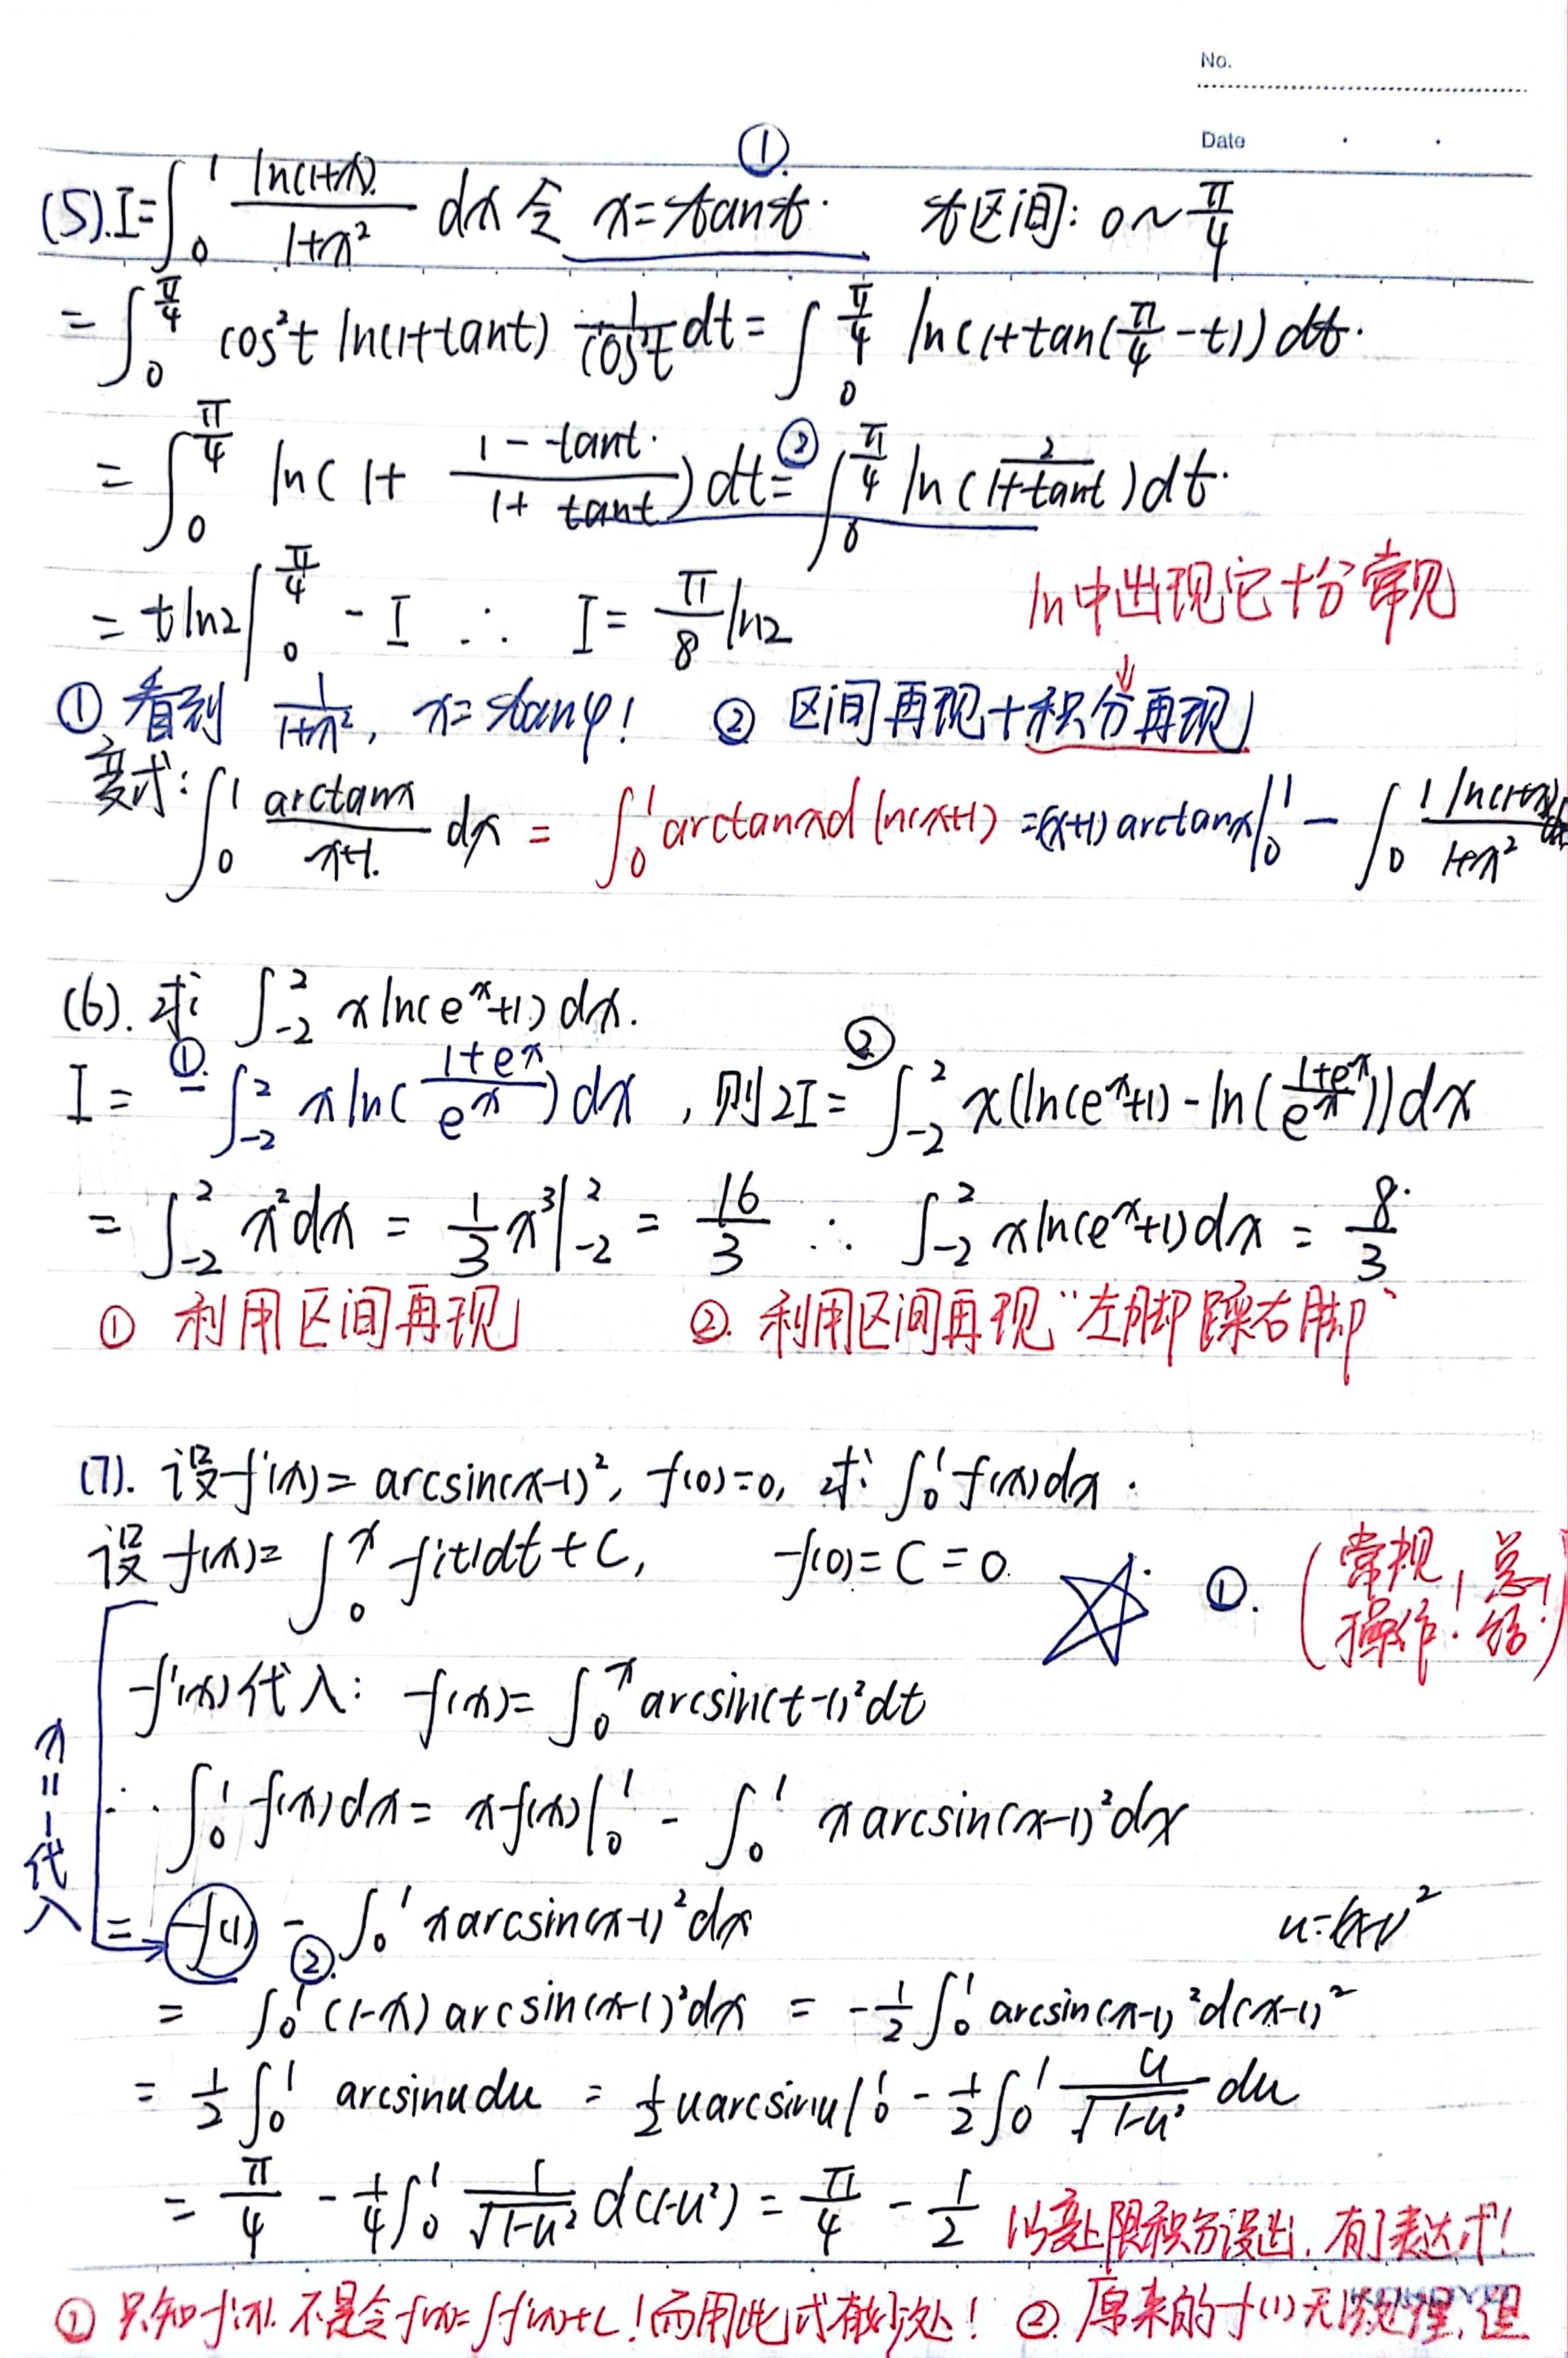 No.
Date
①
(5). I=∫₀¹ ln(1+x)/(1+x²) dx 令 x=tant. t区间: 0~π/4
=∫₀^(π/4) cos²t ln(1+tant) 1/cos²t dt = ∫₀^(π/4) ln(1+tan(π/4-t)) dt.
=∫₀^(π/4) ln(1+ (1-tant)/(1+tant)) dt ②= ∫₀^(π/4) ln(2/(1+tant)) dt.
= tln2|₀^(π/4) - I ∴ I= π/8 ln2
ln中出现它十分常见
↓
① 看到 1/(1+x²), x=tanφ! ② 区间再现+积分再现
变式: ∫₀¹ arctanx/(x+1) dx = ∫₀¹ arctanxd ln(x+1) =(x+1) arctanx|₀¹ - ∫₀¹ ln(1+x)/(1+x²) dx
(6). 求 ∫₋₂² xln(eˣ+1) dx.
I= ①-∫₋₂² xln((1+eˣ)/eˣ) dx , 则2I= ②∫₋₂² x(ln(eˣ+1)-ln((1+eˣ)/eˣ))dx
= ∫₋₂² x²dx = 1/3 x³|₋₂² = 16/3 ∴ ∫₋₂² xln(eˣ+1)dx = 8/3
① 利用区间再现 ②. 利用区间再现“左脚踩右脚”
(7). 设f'(x)= arcsin(x-1)², f(0)=0, 求: ∫₀¹ f(x)dx.
设f(x)= ∫₀ˣ f'(t)dt+C, f(0)=C=0. ☆ ①. (常规操作! 总结!)
f'(x)代入: f(x)= ∫₀ˣ arcsin(t-1)²dt
∴ ∫₀¹ f(x)dx= xf(x)|₀¹ - ∫₀¹ xarcsin(x-1)²dx
x=1代入
= f(1) - ∫₀¹ xarcsin(x-1)²dx u=(x-1)²
②.
= ∫₀¹ (1-x) arcsin(x-1)²dx = -1/2∫₀¹ arcsin(x-1)²d(x-1)²
= 1/2∫₀¹ arcsinudu = 1/2uarcsinu|₀¹ - 1/2∫₀¹ u/√(1-u²) du
= π/4 - 1/4∫₀¹ 1/√(1-u²) d(1-u²) = π/4 - 1/2 以变上限积分设出, 有了表达式!
① 只知f'(x). 不是令f(x)=∫f'(x)+C! 而用此式有妙处! ②. 原来的f(1)无法处理, 但